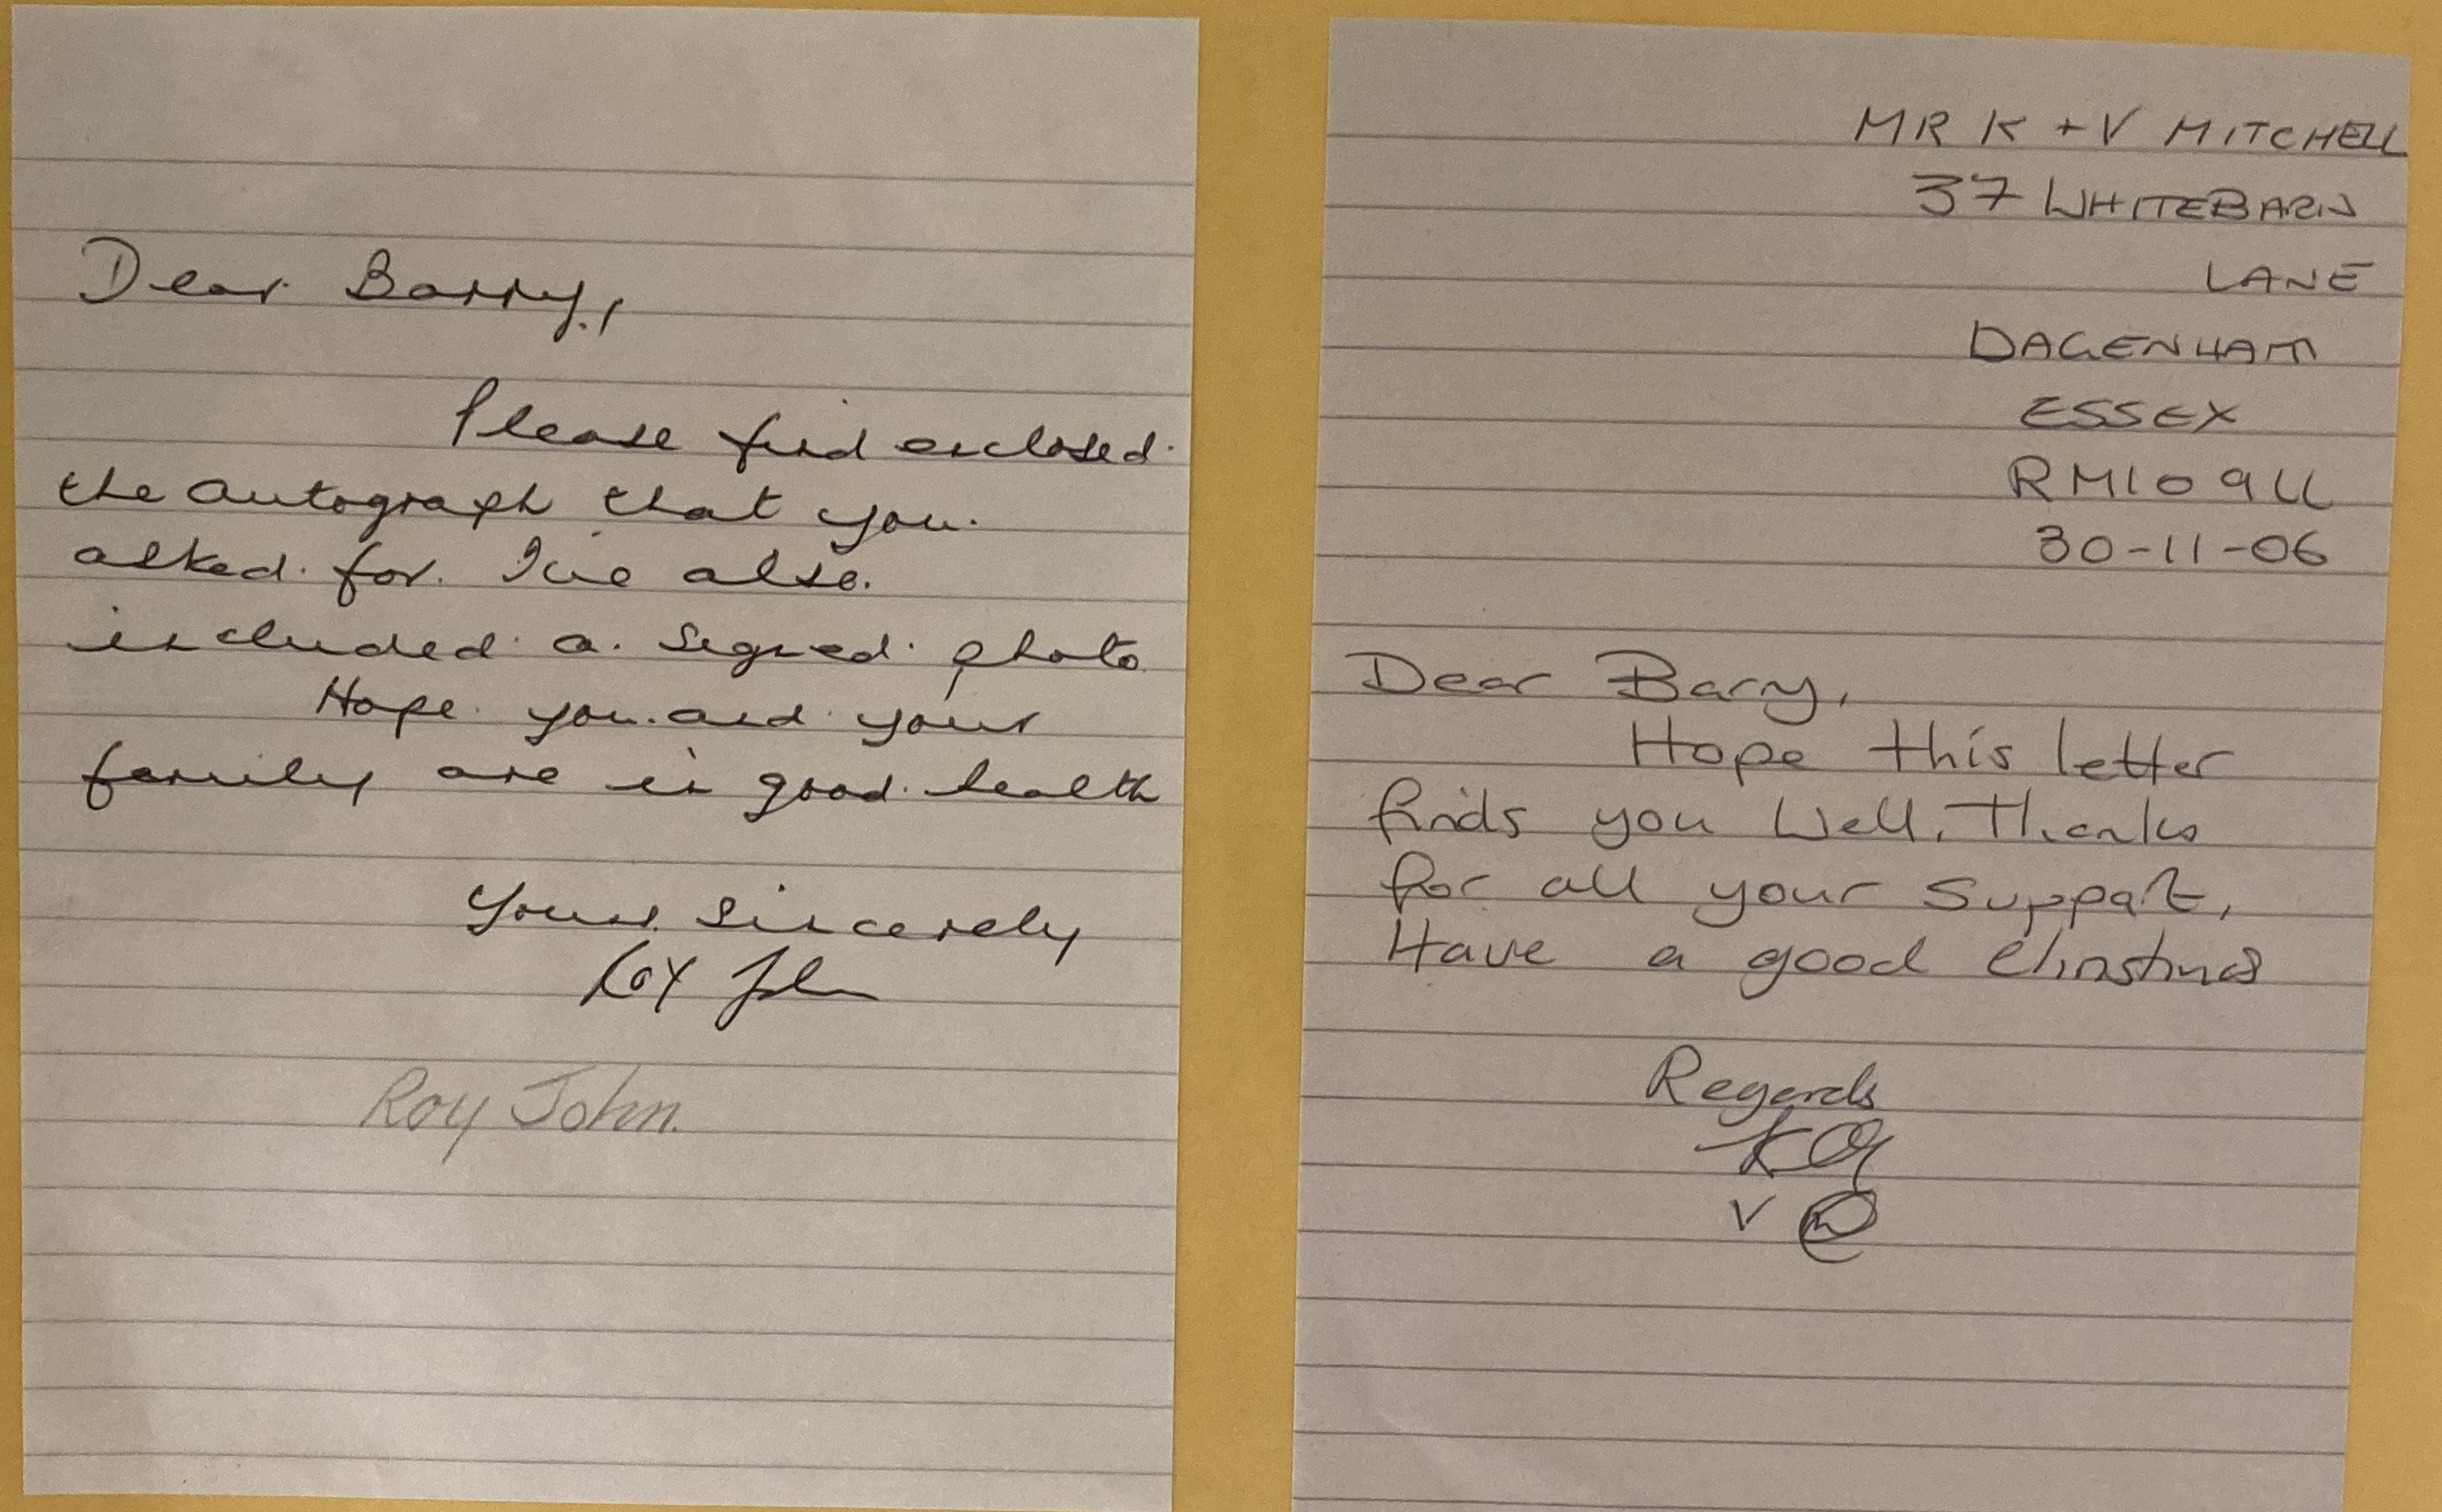 Dear Barry,
Please find enclosed
the autograph that you
asked for. I've also
included a signed photo
Hope you and your
family are in good health
Yours Sincerely
Roy John
Roy John.
MR K + V MITCHELL
37 WHITEBARN
LANE
DAGENHAM
ESSEX
RM10 9LL
30-11-06
Dear Barry,
Hope this letter
finds you well. Thanks
for all your support,
Have a good Christmas
Regards
K
V